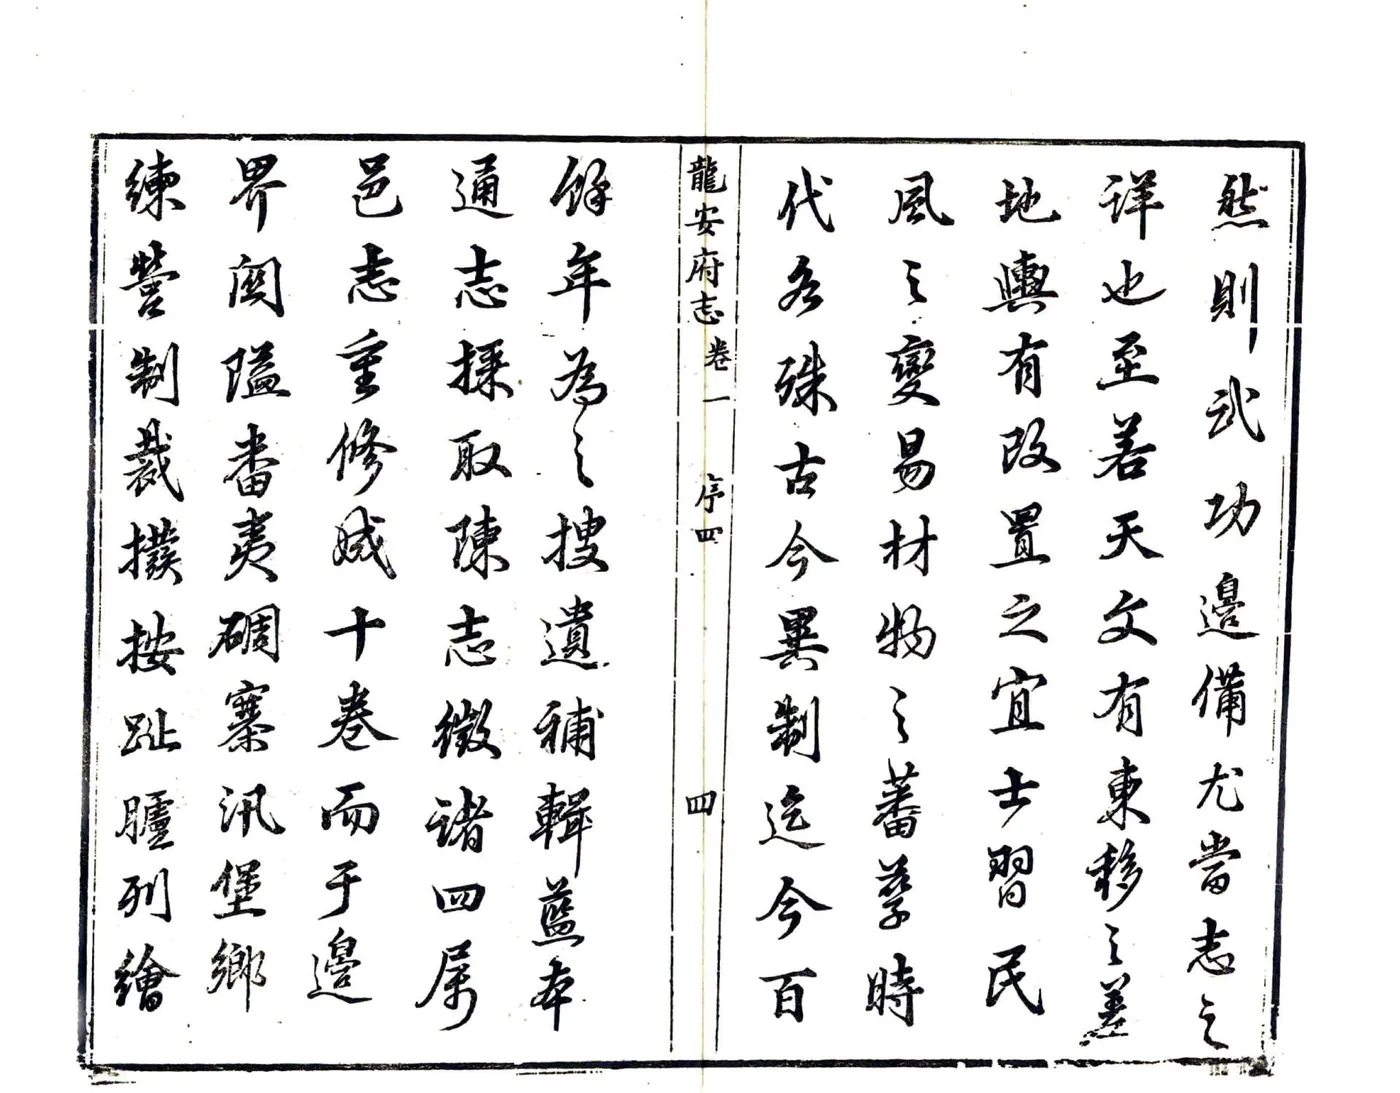 然則武功邊備尤當志之
詳也至若天文有東移之差
地輿有改置之宜士習民
風之變易材物之蕃孳時
代各殊古今異制迄今百
龍安府志 卷一 序四 四
餘年為之搜遺補輯藍本
通志採取陳志徵諸四属
邑志重修成十卷而于邊
界關隘番夷碉寨汛堡鄉
練營制裁撲按趾臚列繪